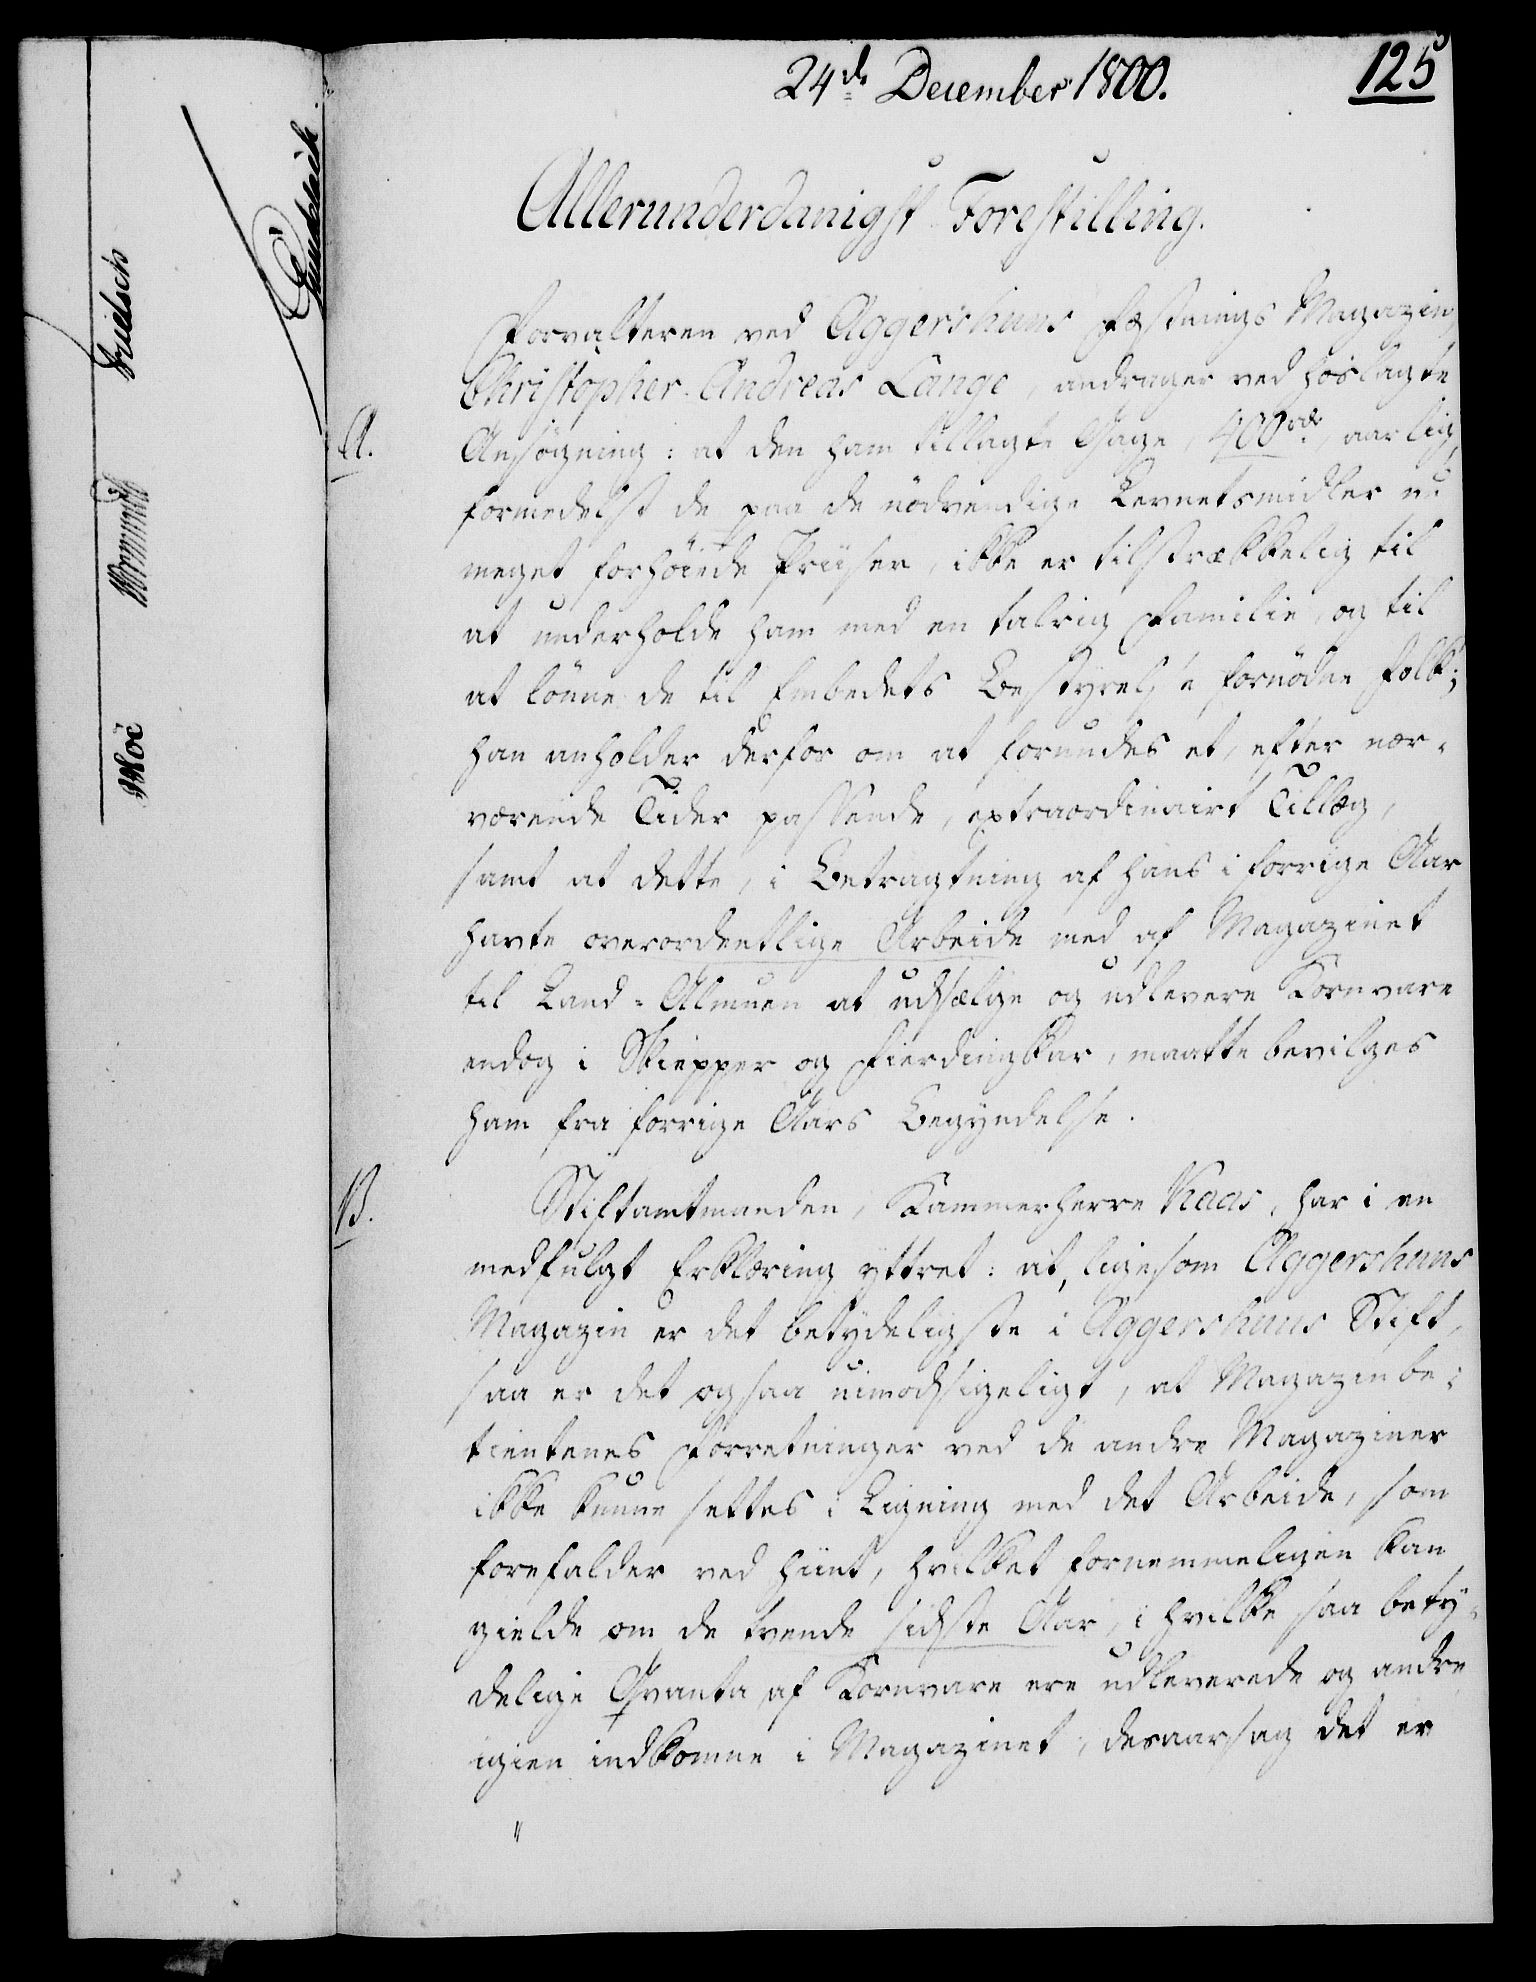 24de December 1800.
125
Allerunderdanigst Forestilling.
Forvalteren ved Aggershuus Fæstnings Magazin
Christopher Andreas Lange, andrager ved hoslagte
A.
Ansøgning: at den ham tillagte Gage, 400 rd, aarlig,
formedelst de paa de nødvendige Levnetsmidler nu
meget forhøiede Priiser, ikke er tilstrækkelig til
at underholde ham med en talrig Familie, og til
at lønne de til Embedets Bestyrelse fornødne Folk;
han anholder derfor om at forundes et, efter nær-
værende Tider passende, extraordinairt Tillæg,
samt at dette, i Betragtning af hans i forrige Aar
havte overordentlige Arbeide med af Magazinet
til Land-Almuen at udsælge og udlevere Kornvare
endog i Skiepper og Fierdingkar, maatte bevilges
ham fra forrige Aars Begyndelse.
B.
Stiftamtmanden, Kammerherre Kaas, har i en
medfulgt Erklæring yttret: at, ligesom Aggershuus
Magazin er det betydeligste i Aggershuus Stift,
saa er det ogsaa uimodsigeligt, at Magazinbe-
tientenes Forretninger ved de andre Magaziner
ikke kunne settes i Ligning med det Arbeide, som
forefalder ved hiint, hvilket fornemmeligen kan
gielde om de tvende sidste Aar, i hvilke saa bety-
delige Qvanta af Kornvare ere udleverede og andre
igien indkomne i Magazinet, desaarsag det er
"